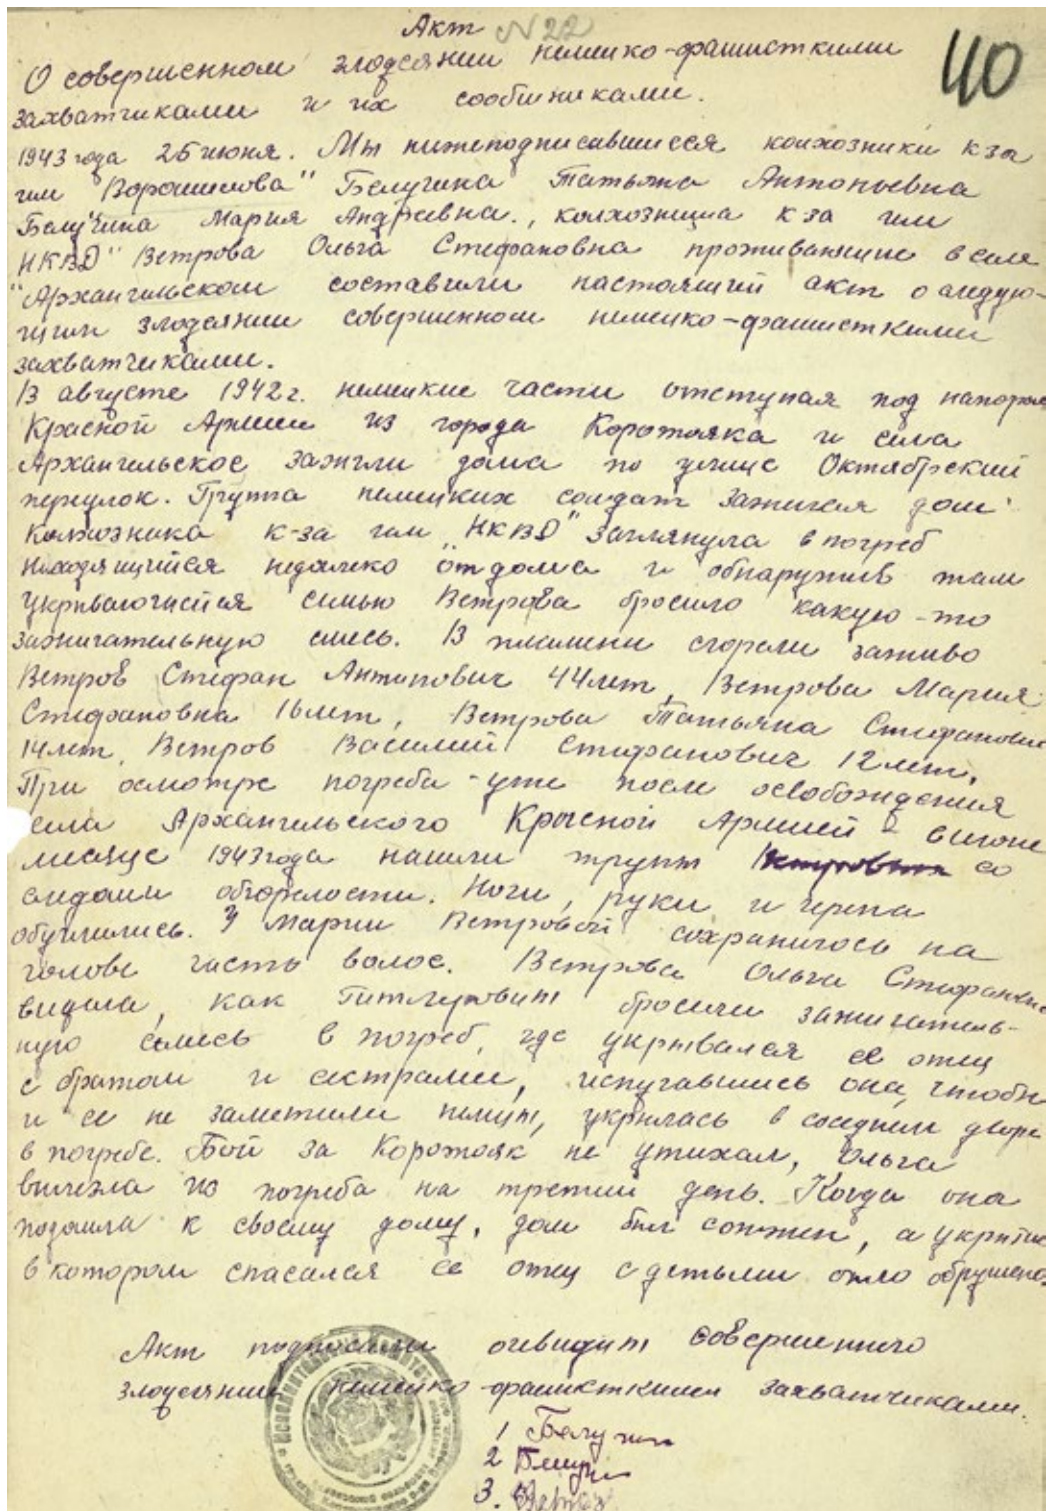 Акт N 22
40
О совершенном злодеянии немецко-фашисткими
захватчиками и их сообщниками.
1943 года 25 июня. Мы нижеподписавшиеся колхозники к-за
им Ворошилова" Белугина Татьяна Антоньевна
Белугина Мария Андреевна., колхозница к-за им
НКВД" Ветрова Ольга Стифановна проживающие в селе
"Архангельском составили настоящий акт о следую-
щим злодеянии совершенном немецко-фашисткими
захватчиками.
В августе 1942 г. немецкие части отступая под напором
Красной Армии из города Коротояка и села
Архангельское зажгли дома по улице Октябрский
переулок. Группа немецких солдат зажигая дом
колхозника к-за им „НКВД" заглянула в погреб
находящийся недалеко от дома и обнаружив там
укрывающийся семью Ветрова бросило какую-то
зажигательную смесь. В пламени сгорели заживо
Ветров Стифан Антипович 44 лет, Ветрова Мария
Стифановна 16 лет, Ветрова Татьяна Стифановна
14 лет, Ветров Василий Стифанович 12 лет.
При осмотре погреба - уже после освобождения
села Архангельского Красной Армией в июне
месяце 1943 года нашли трупы со
следами обгорелости. Ноги, руки и черепа
обуглились. У Марии Ветровой сохранилось на
голове часть волос. Ветрова Ольга Стифановна
видела, как гитлеровцы бросили зажигатель-
ную смесь в погреб, где укрывался ее отец
с братом и сестрами, испугавшись она, чтобы
и ее не заметили немцы, укрылась в соседнем дворе
в погребе. Бой за Коротояк не утихал, Ольга
вылезла из погреба на третий день. Когда она
подошла к своему дому, дом был сожжен, а укрытие
в котором спасался ее отец с детьми было обрушено.
Акт подписали очевидцы совершенного
злодеяний немецко-фашисткими захватчиками.
1 Белугин
2 Белуги
3. Ветров